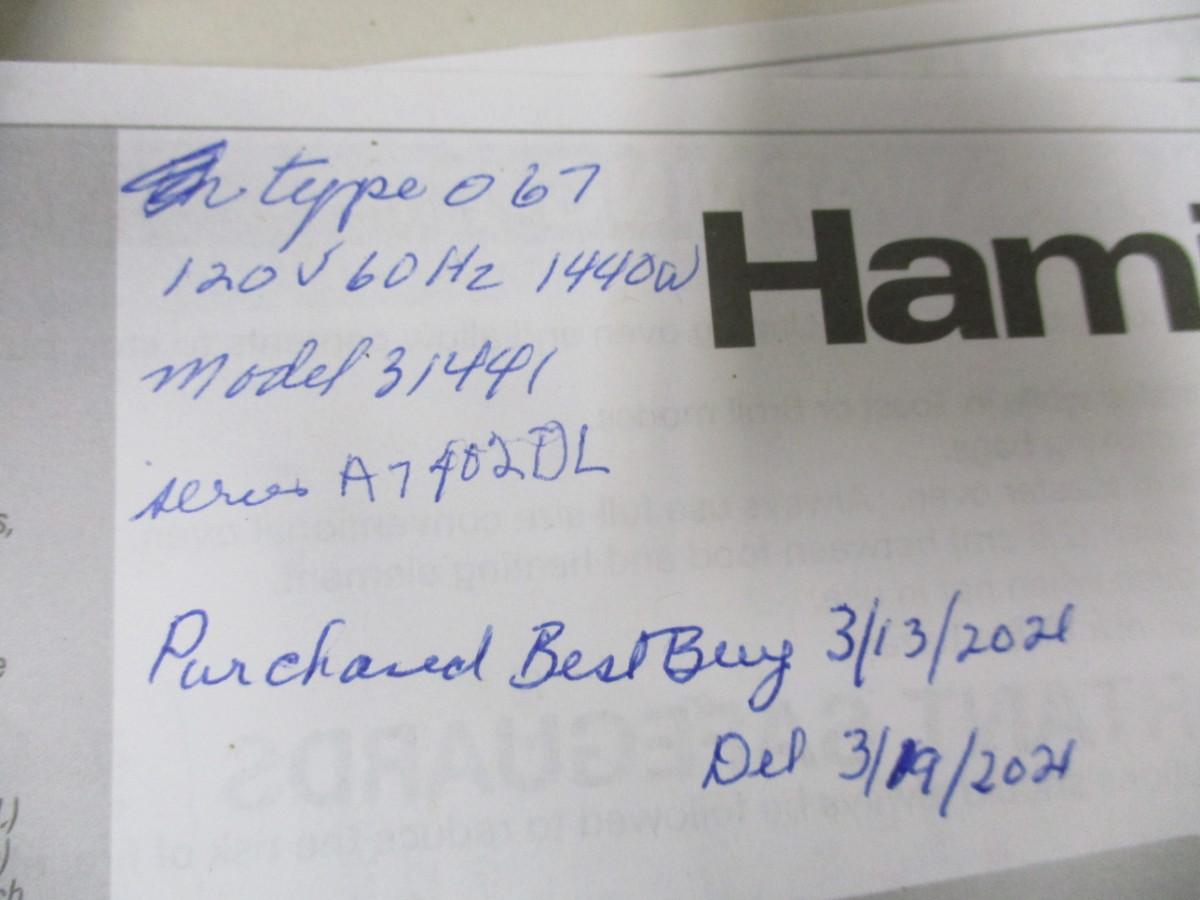 type 067
120V 60Hz 1440W
Hami
Model 31441
series A7402DL
Purchased Best Buy 3/13/2021
Del 3/19/2021
s,
e
.)
)
ch